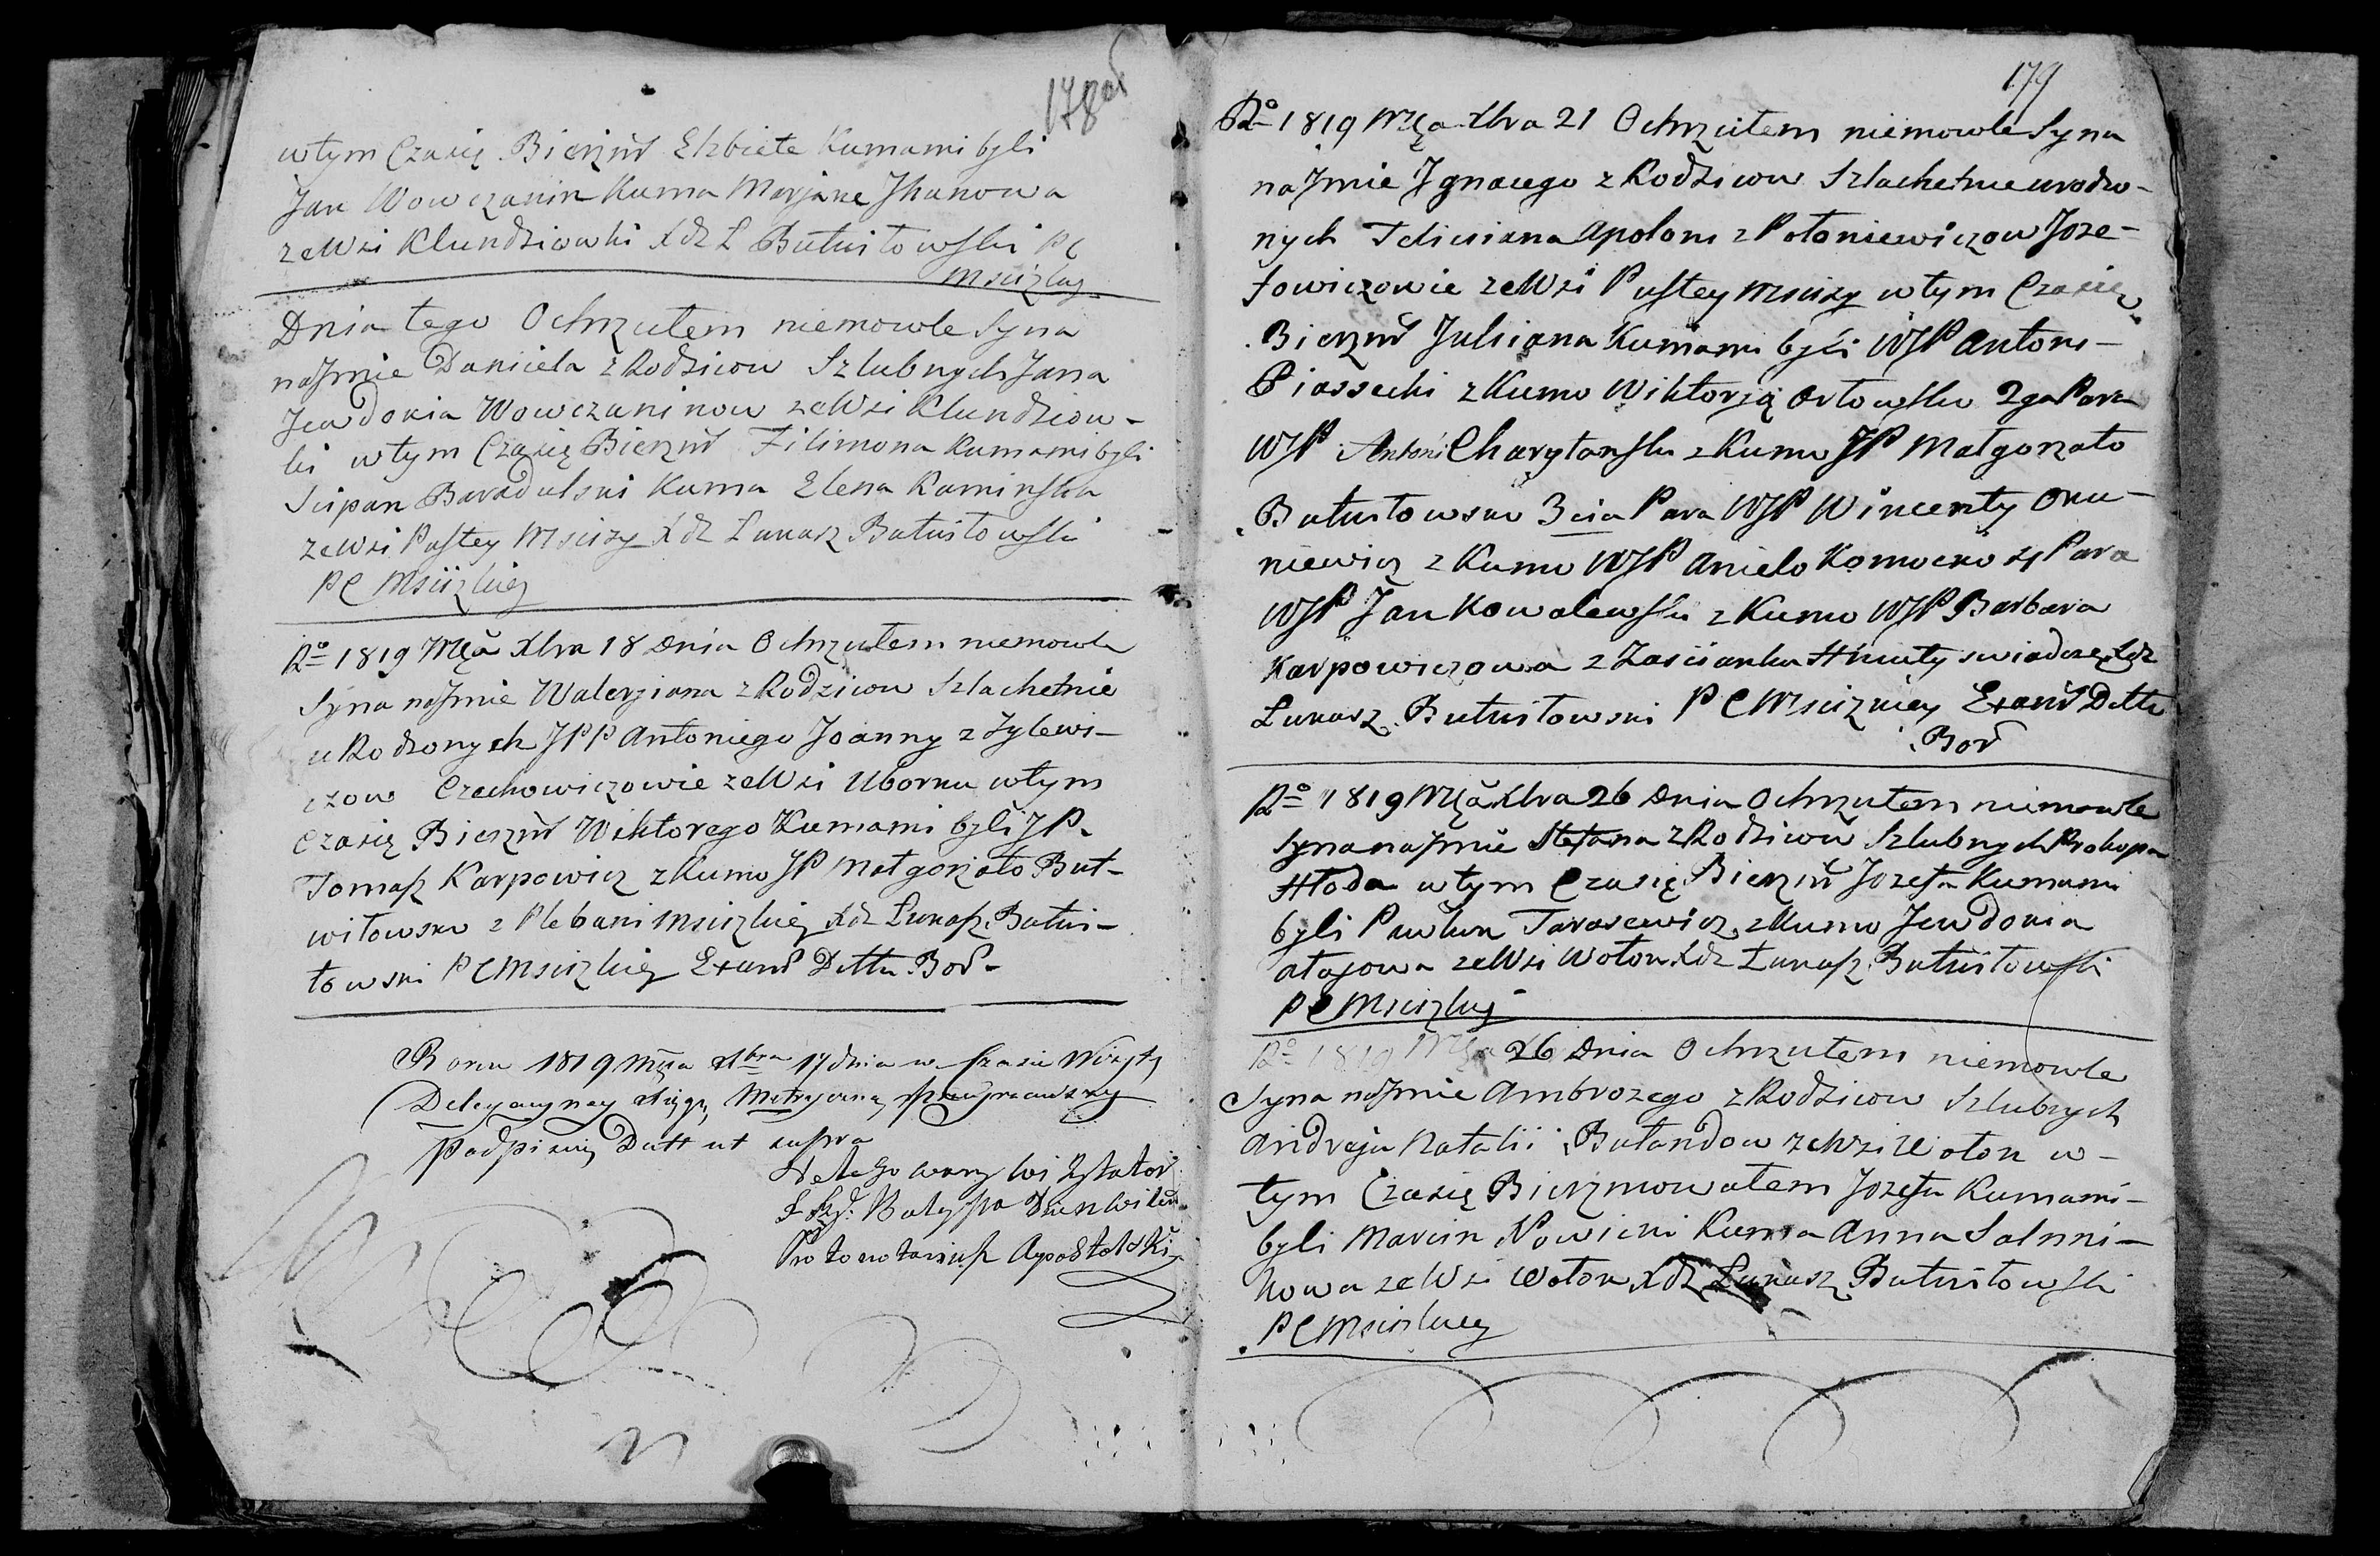 178 об
w tym Czasię Bierzm̃ Elzbiete Kumami byli
Jan Wowczanin Kuma Marjana Jhanowa
ze Wsi Klundziowki Xdz Ł Butwiłowski P C
Msciżkiey
Dnia tego Ochrzciłem niemowle Syna
na Jmie Daniela z Rodzicow Szlubnych Jana
Jewdokia Wowczaninow ze Wsi Klundziow-
ki w tym Czasię Bierzm̃ Filimona Kumami byli
Scipan Baradulski Kuma Elena Kaminska
ze Wsi Pustey Mscizy Xdz Łukasz Butwiłowski
P C Msciżkiey
Rº 1819 Mꝗa Xbra 18 Dnia Ochrzciłem niemowle
Syna na Jmie Waleryiana z Rodzicow Szlachetnie
u Rodzonych JPP Antoniego Joanny z Zylewi-
czow Czechowiczowie ze Wsi Uborku w tym
Czasię Bierzm̃ Wiktorego Kumami byli JP.
Tomasz Karpowicz z Kumo JP Małgorzato But-
wiłowsko z Plebani Msciżkiey Xdz Łukasz Butwi-
łowski P C Msciżkiey Exam̃ Dettu Bor-
Roku 1819 mꝗa Xbra 17 dnia w Czasie Wizyty
Delegacyney Xięgę Metryczną
podpisuię Datt ut supra
Delegowany Wizytator
Protonotariusz Apostolski
179
Rº 1819 Mꝗa Xbra 21 Ochrzciłem niemowle Syna
na Jmie Jgnacego z Rodzicow Szlachetnie urodzo-
nych Feliciana Apoloni z Połoniewiczow Joze-
fowiczowie ze Wsi Pustey Mscizy w tym Czasię
Bierzm̃ Juliana Kumami byli WJP Antoni-
Piassecki z Kumo Wiktorją Orłowsko 2ga Para
WJP Antoni Charytonski z Kumo JP Małgorzato
Butwiłowsko 3cia Para WJP Wincenty Oku-
niewicz z Kumo WJP Anielo Komocko 4 Para
WJP Jan Kowalewski z Kumo WJP Barbara
Karpowiczowa z Zascianku Hniuty swiadczę Xdz
Łukasz Butwiłowski P C Msciżkiey Exam̃ Dettu
Bor
Rº 1819 Mꝗa Xbra 26 Dnia Ochrzciłem niemowle
Syna na Jmie Stefana z Rodzicow Szlubnych Prokopa
Hłoda w tym Czasię Bierzm̃ Jozefa Kumami
byli Pawluk Tarasewicz z Kumo Jewdokia
Atajowa ze Wsi Wołok Xdz Łukasz Butwiłowski
P C Msciżkiey
Rº 1819 Mꝗa 26 Dnia Ochrzciłem niemowle
Syna na Jmie Ambrozego z Rodzicow Szlubnych
Andreja Natalii Bułandow ze Wsi Wołok w-
tym Czasię Bierzmowałem Jozefa Kumami-
byli Marcin Nowicki Kuma Anna Salnni-
kowa ze Wsi Wołok Xdz Łukasz Butwiłowski
P C Msciżkiey